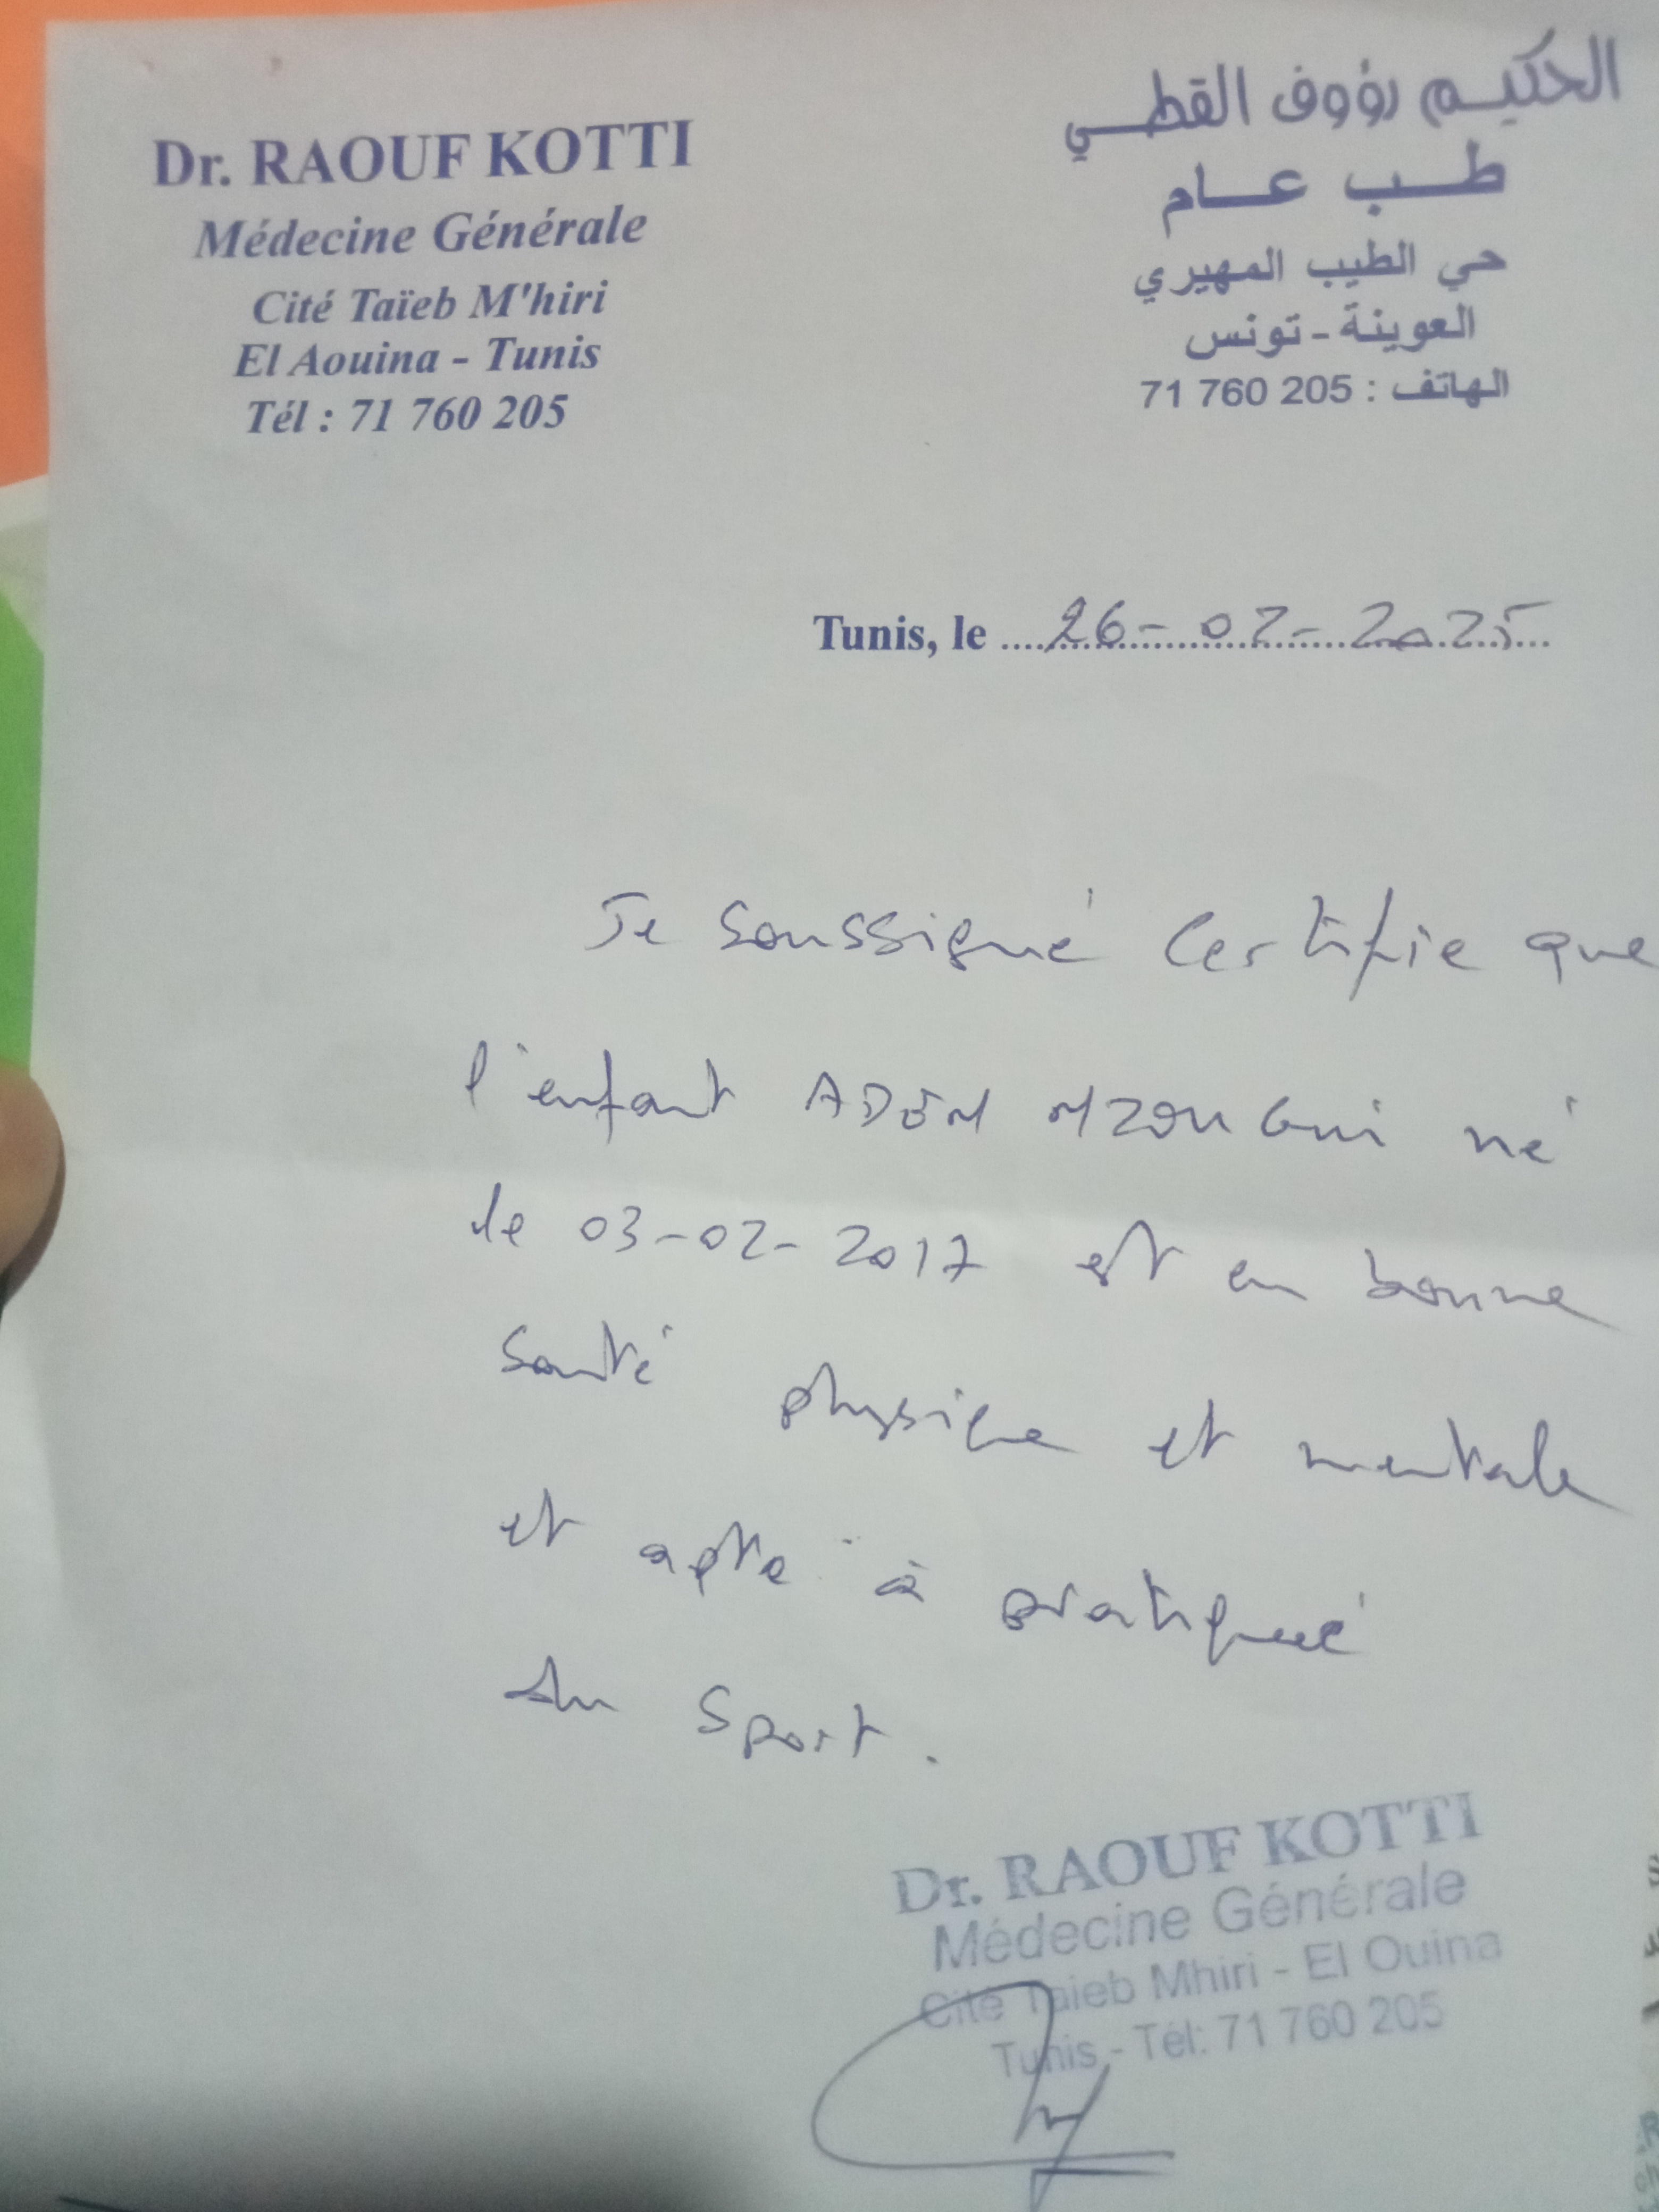 Dr. RAOUF KOTTI
Médecine Générale
Cité Taïeb M'hiri
El Aouina - Tunis
Tél : 71 760 205
الحكيم رؤوف القطي
طب عام
حي الطيب المهيري
العوينة - تونس
الهاتف : 205 760 71
Tunis, le 26-02-2025
Je soussigné certifie que
l'enfant ADEM MZOUGUI né
le 03-02-2017 est en bonne
santé physique et mentale
et apte à pratiqué
du sport.
Dr. RAOUF KOTTI
Médecine Générale
Cité Taieb Mhiri - El Ouina
Tunis - Tél: 71 760 205